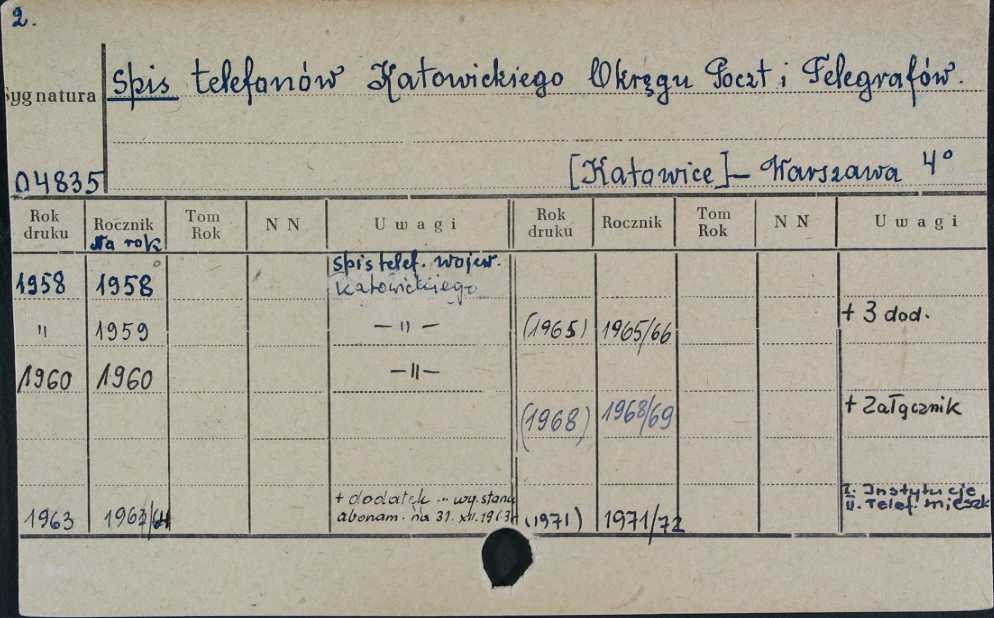 2.
Spis telefonów Katowickiego Okręgu Poczt i Telegrafów.
Sygnatura
04835 [Katowice] – Warszawa 4°
Rok druku Rocznik Na rok Tom Rok N N Uwagi Rok druku Rocznik Tom Rok N N Uwagi
1958 1958 Spis telef. wojew. Katowickiego
" 1959 — " — (1965) 1965/66 + 3 dod.
1960 1960 — " —
(1968) 1968/69 + Załącznik
1963 1963/64 + dodatek wg. stanu abonam. na 31. XII. 1963 r. (1971) 1971/72 I. Instytucje II. Telef. mieszk